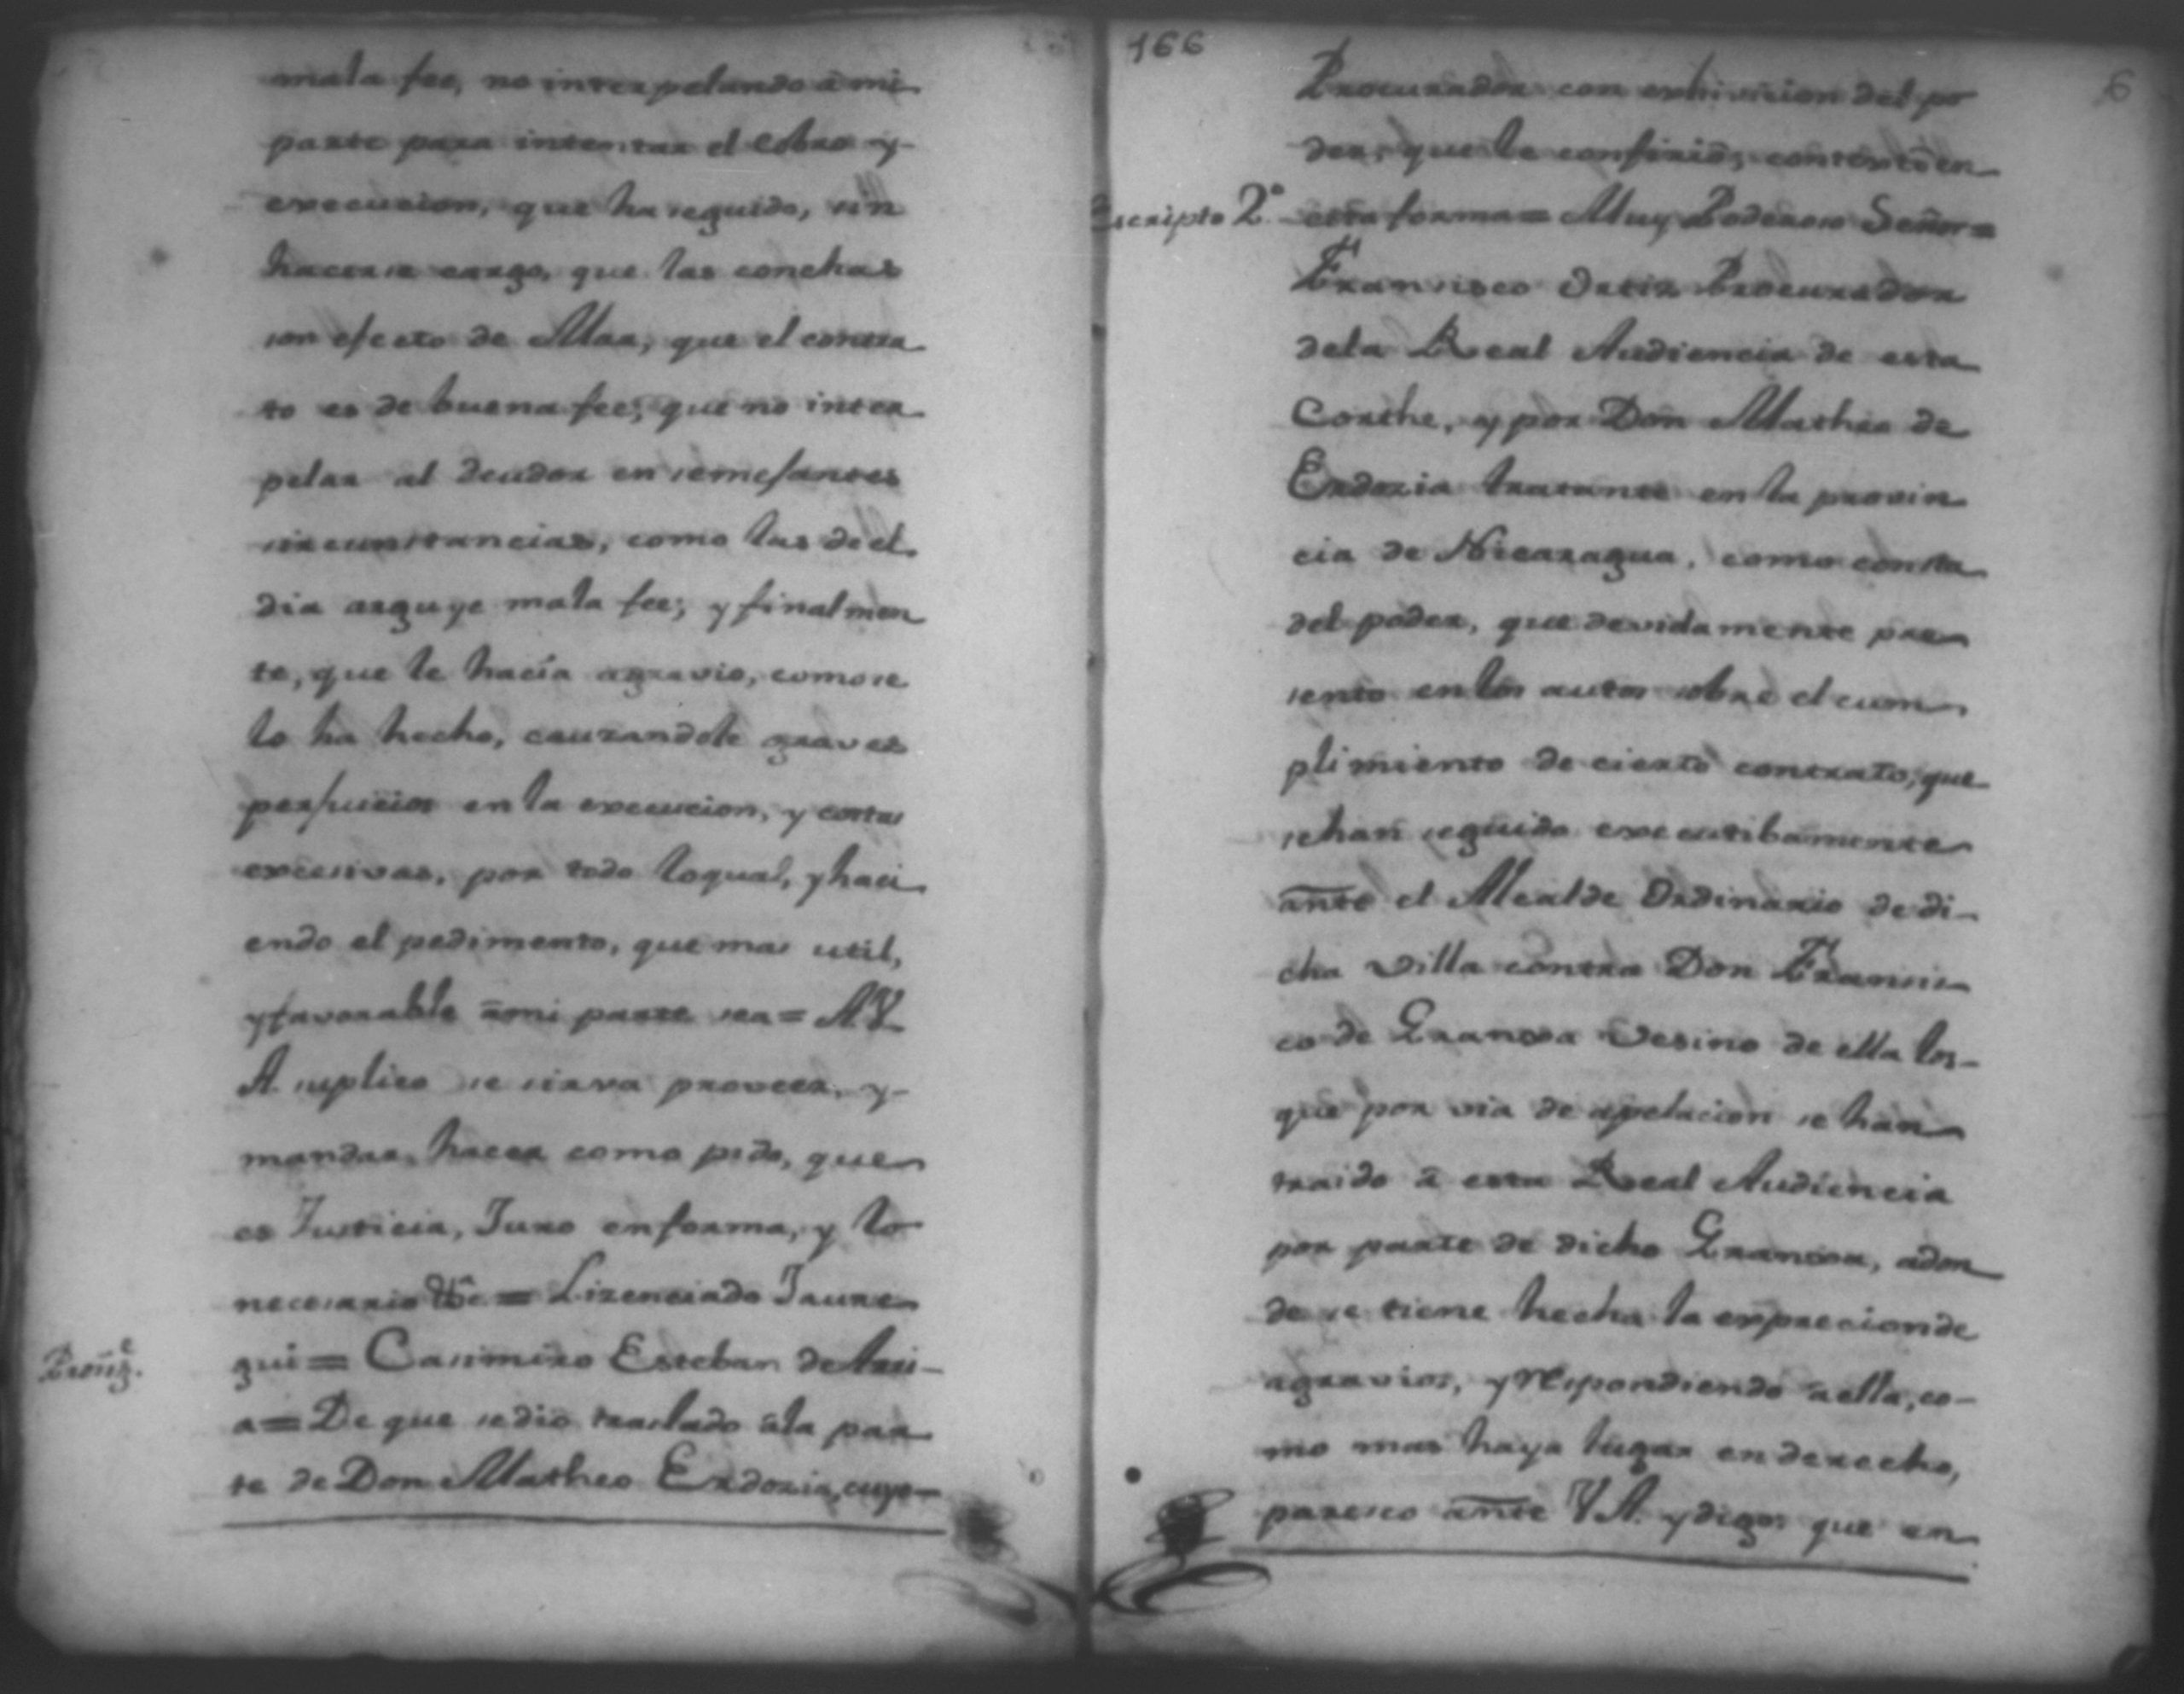 mala fee, no interpelando â mi
parte para intentar el cobro y
execucion, que ha seguido, sin
hacerse cargo, que las conchas
son efecto de Mar, que el contra
to es de buena fee, que no inter
pelar al deudor en semejantes
circunstancias, como las de el
dia arguye mala fee; y finalmen
te, que le hacía agravio, como se
lo ha hecho, cauzandole graves
perjuicios en la execucion, y costas
excesivas, por todo loqual, y haci
endo el pedimento, que mas util,
y favorable â mi parte sea = A V.
A. suplico se sirva proveer, y
mandar hacer como pido, que
es Justicia, Juro en forma, y lo
necesario = Lizenciado Jaure
gui = Casimiro Esteban de Arri-
a = De que se dio traslado âla par
te de Don Matheo Erdozia, cuyo
166
6
Procurador con exhivicion del po
der, que le confirió, contextó en
Escripto 2.º esta forma = Muy Poderoso Señor =
Francisco Ortiz Procurador
dela Real Audiencia de esta
Corthe, y por Don Matheo de
Erdozia tratante en la provin
cia de Nicaragua, como consta
del poder, que devidamente pre
sento en los autos sobre el cum
plimiento de cierto contrato, que
se han seguido executibamente
ante el Alcalde Ordinario de di-
cha Villa contra Don Francis
co de Granxa Vesino de ella los
que por via de apelacion se han
traido â esta Real Audiencia
por parte de dicho Granxa, adon
de se tiene hecha la exprecion de
agravios, y respondiendo â ella, co-
mo mas haya lugar en derecho,
paresco ante V A. y digo: que en